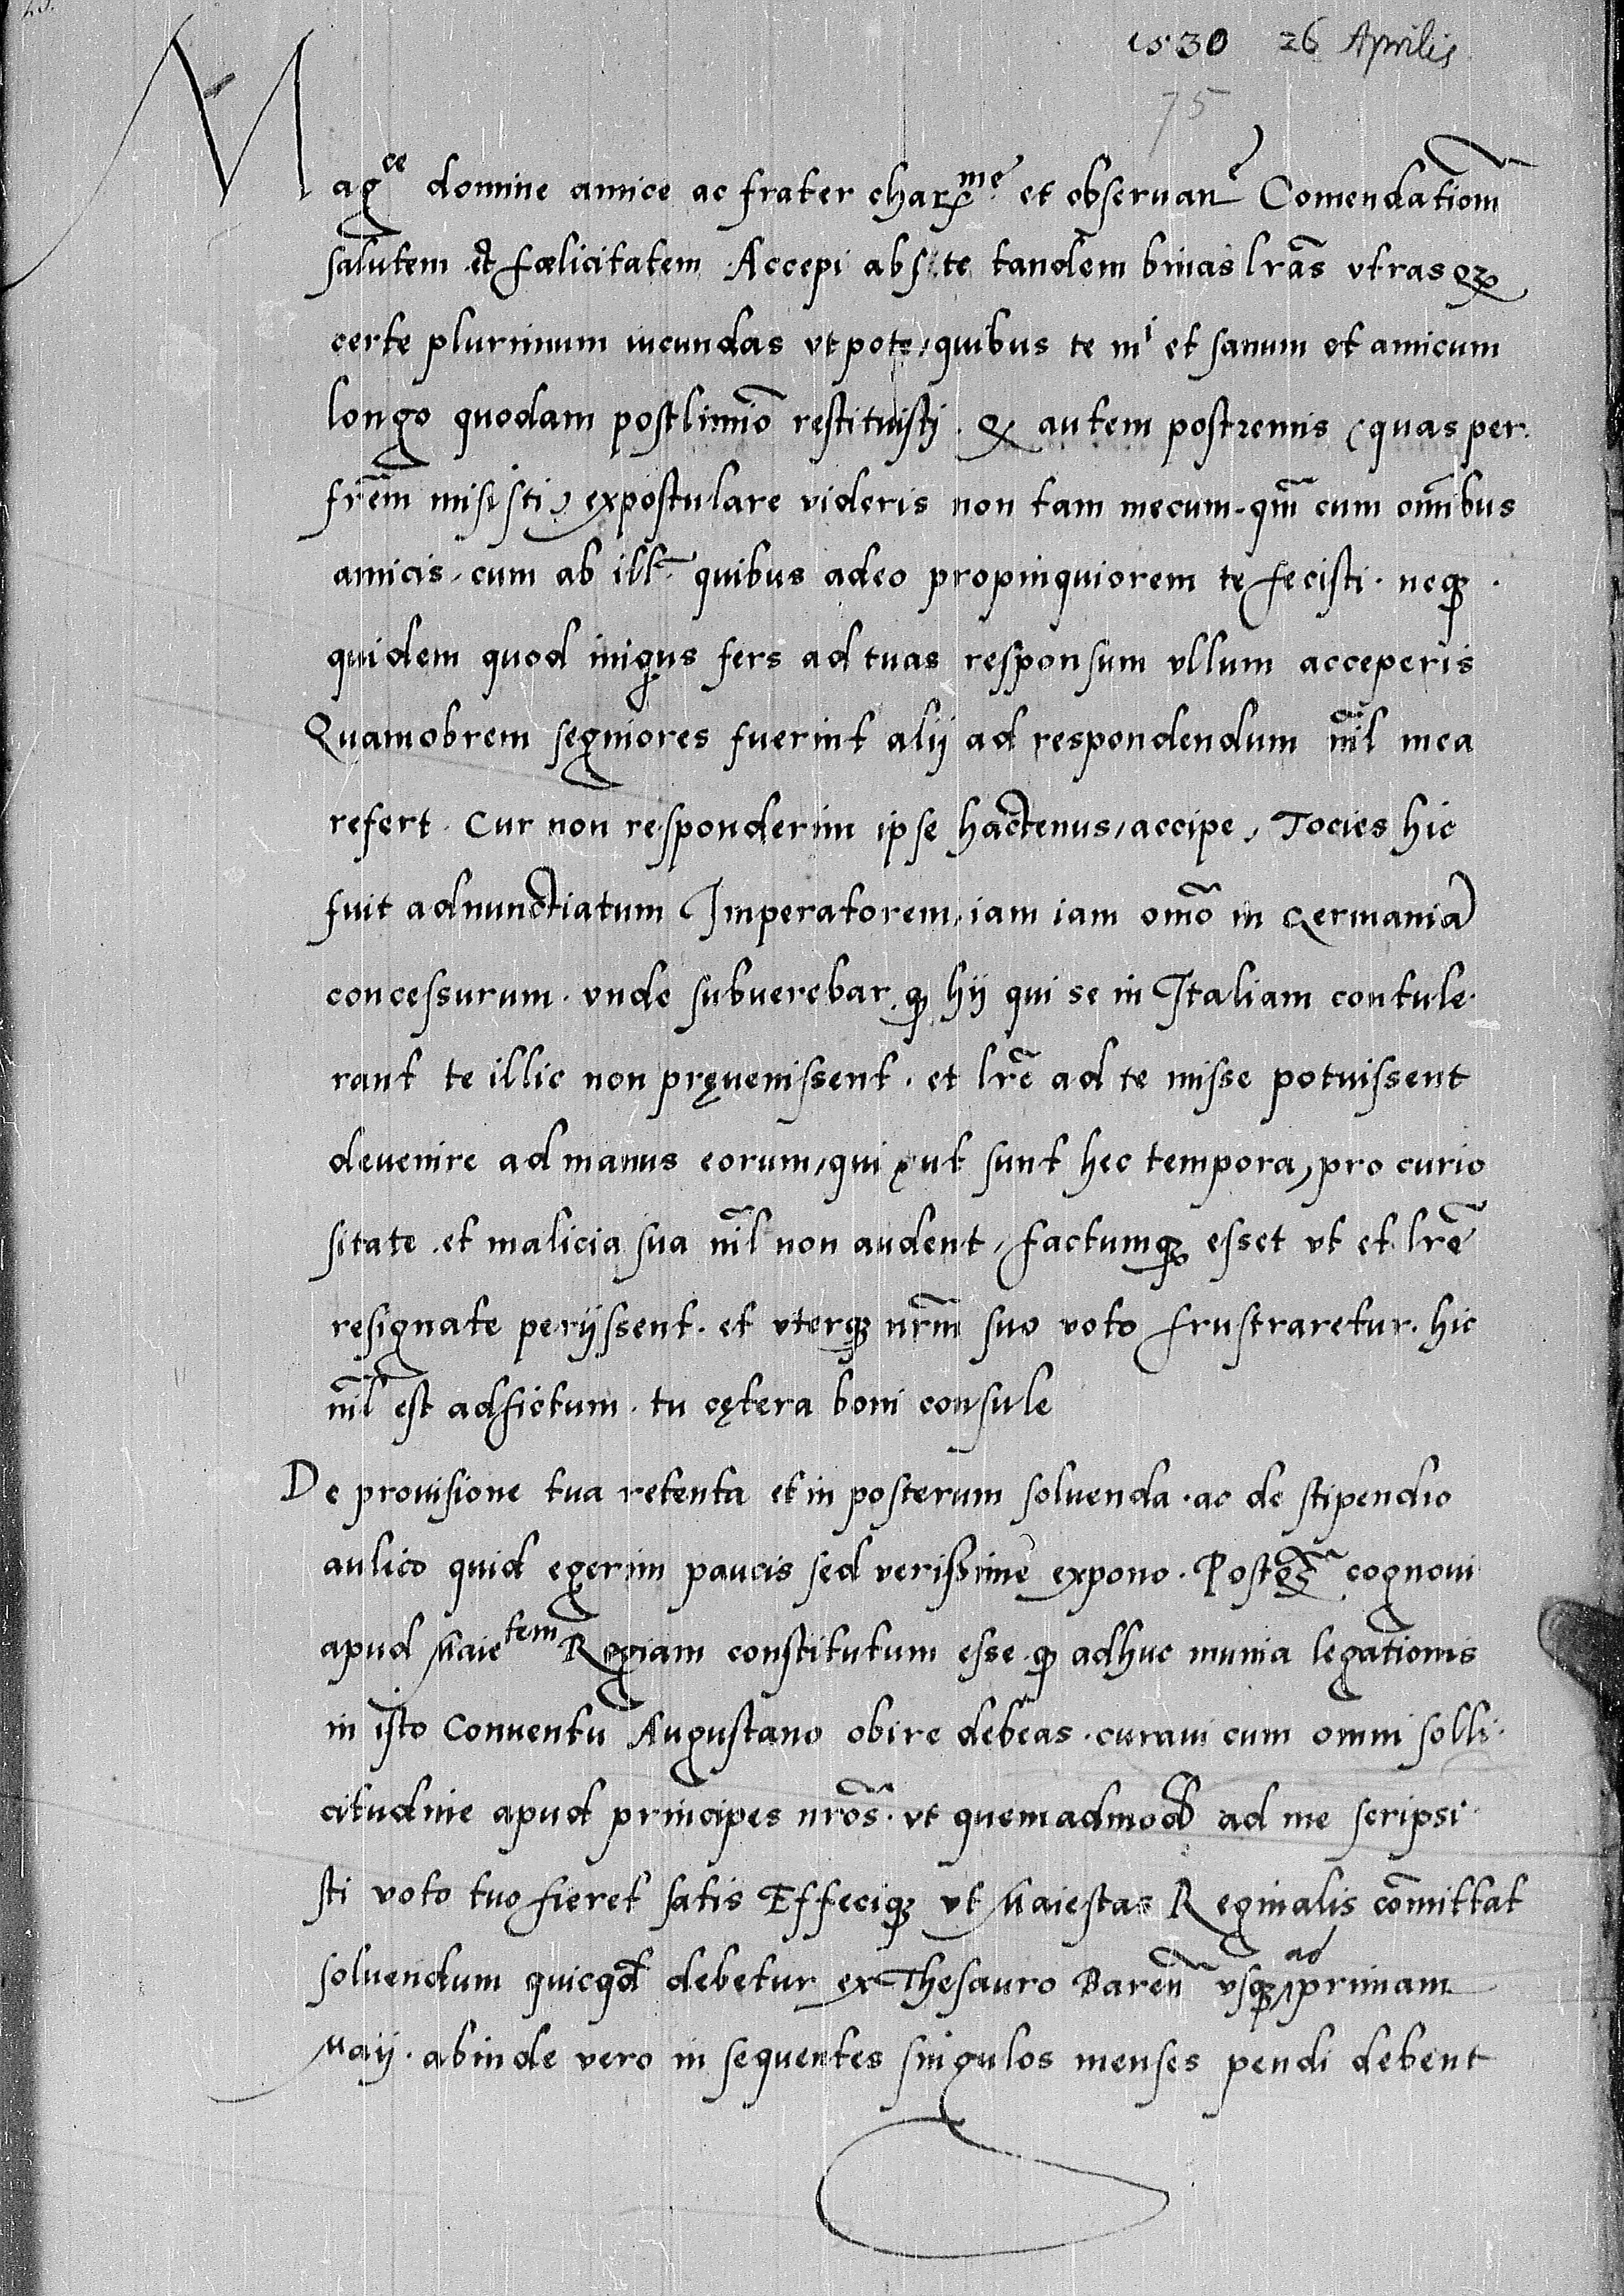 1530 26 Aprilis
75
Magce domine amice ac frater charme et obseruan Comendationm
salutem et foelicitatem Accepi abs te tandem binas lras vtrasq
certe plurimum iucundas vt pote, quibus te mi et sanum et amicum
longo quodam postliminio restituisti. Q autem postremis (quas per
frem misisti) expostulare videris non tam mecum. qm cum omibus
amicis, cum ab ill. quibus adeo propinquiorem te fecisti. neq
quidem quod iniqus fers ad tuas responsum vllum acceperis
Quamobrem segniores fuerint alij ad respondendum nil mea
refert. Cur non responderim ipse hactenus, accipe, Tocies hic
fuit adnunctiatum Imperatorem, iam iam omo in Germania
concessurum. vnde subuerebar q hij qui se in Italiam contule
rant te illic non pręuenissent. et lre ad te misse potuissent
deuenire ad manus eorum, qui (vt sunt hec tempora) pro curio
sitate et malicia sua nil non audent, factumq esset vt et lre
resignate perijssent. et vterq nrm suo voto frustraretur. hic
nil est adfictum. tu cętera boni consule
De prouisione tua retenta et in posterum soluenda. ac de stipendio
aulico quid egerim paucis sed verissime expono. Postq cognoui
apud Maietem Regiam constitutum esse. q adhuc munia legationis
in isto Conuentu Augustano obire debeas. curaui cum omni solli
citudine apud principes nros. vt quemadmod ad me scripsi
sti voto tuo fieret satis Effeciq vt Maiestas Reginalis comittat
soluendum quicqd debetur ex Thesauro Baren vsq ad primam
Maij. abinde vero in sequentes singulos menses pendi debent